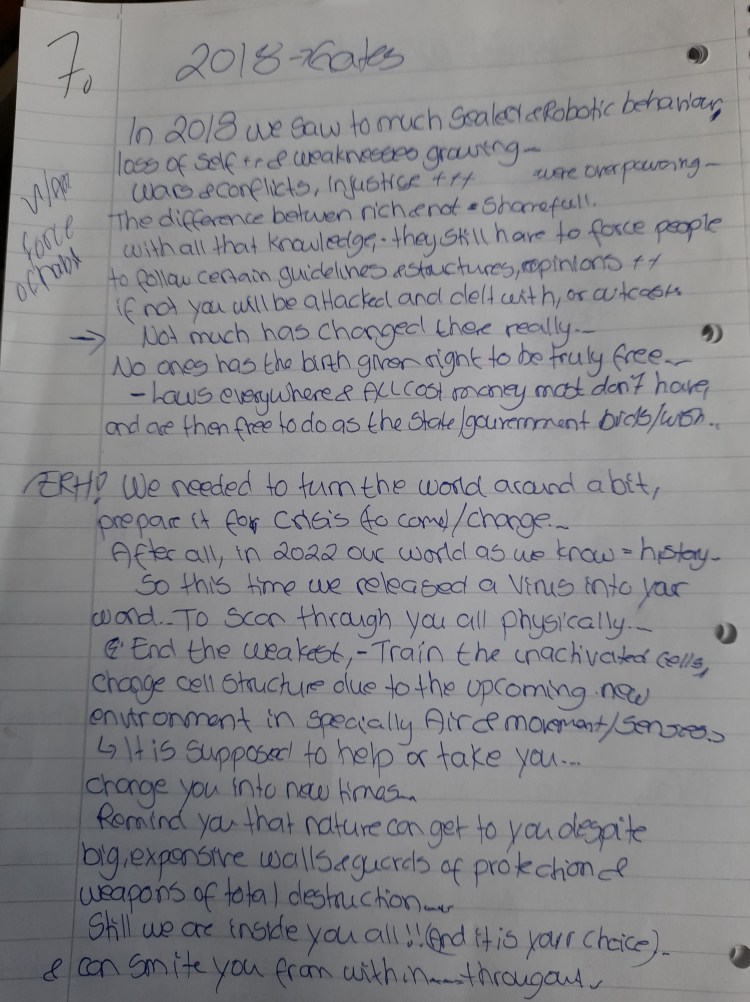 7.
2018 - Gates
In 2018 we saw to much Sealed & Robotic behaviour,
loss of Self ++ & weaknesses growing -
wars & conflicts, Injustice +++ were overpowering -
The difference betwen rich & not = Sharrefull.
with all that knowledge, - they still have to force people
to follow certain guidelines & stuctures, opinions ++
if not you will be attacked and delt with, or outcash
force
of habt
→ Not much has changed there really. -
No ones has the birth given right to be truly free -
- Laws everywhere & ALL cost money most don't have,
and are then free to do as the State/gouvernment bids/wish..
ERH! We needed to turn the world around a bit,
prepare it for Crisis (to come)/change. -
After all, in 2022 our world as we know = history -
So this time we released a Virus into your
world.. To Scan through you all physically. -
& End the weakest, - Train the inactivated cells,
change cell structure due to the upcoming new
environment in specially Air & movement/senses..
↳ It is supposed to help or take you...
change you into new times..
Remind you that nature can get to you despite
big, expensive walls & guards of protection &
weapons of total destruction...
Still we are inside you all!! (And it is your choice). -
& can smite you from within.... througout.